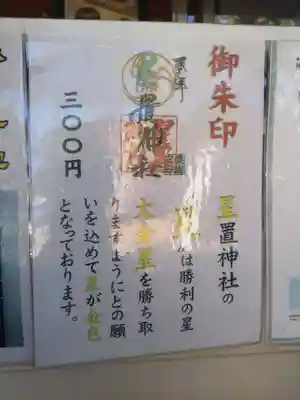 御朱印
星置神社の
は勝利の星
大金星を勝ち取
りますようにとの願
いを込めて星が金色
となっております。
星置神社
三〇〇円